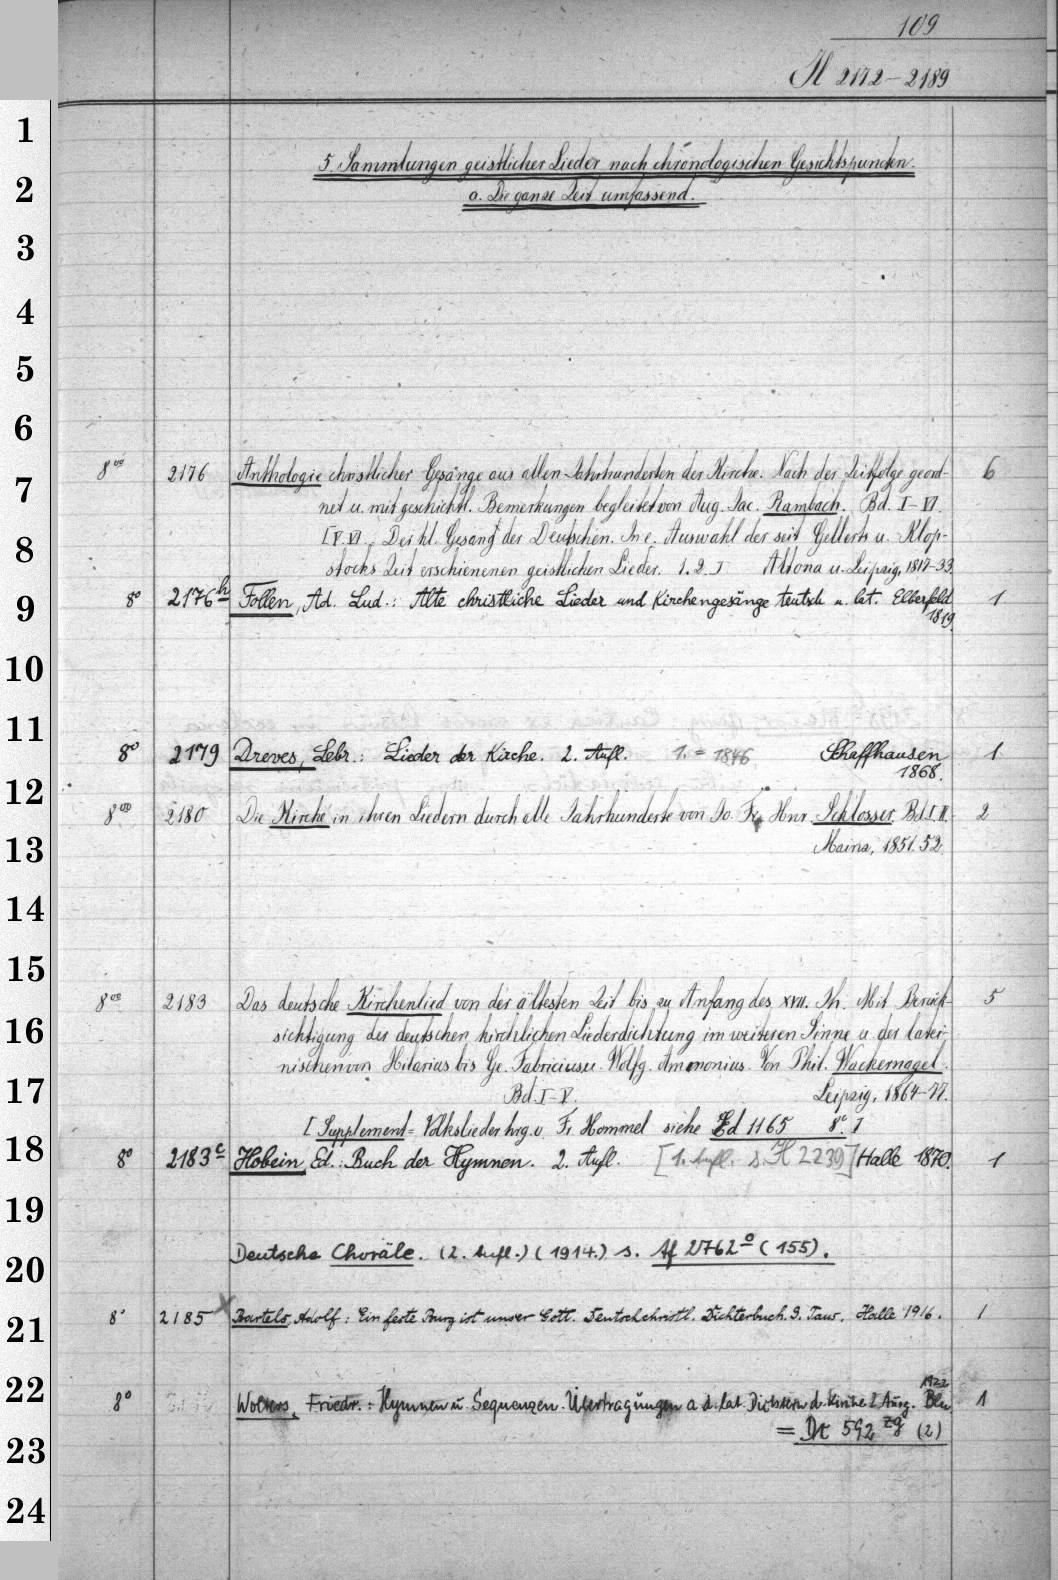 109
H 2172-2189
1
5. Sammlungen geistlicher Lieder nach chronologischen Gesichtspuncten.
2
a. Die ganze Zeit umfassend.
3
4
5
6
8vo 2176 Anthologie christlicher Gesänge aus allen Jahrhunderten der Kirche. Nach der Zeitfolge geord- 6
7
net u. mit geschichtl. Bemerkungen begleitet von Aug. Jac. Rambach. Bd. I-VI.
[V.VI.: Der hl. Gesang der Deutschen. In e. Auswahl der seit Gellerts u. Klop-
8
stocks Zeit erschienenen geistlichen Lieder. 1. 2.] Altona u. Leipzig, 1817-33.
8o 2176h Follen, Ad. Lud.: Alte christliche Lieder und Kirchengesänge teutsch u. lat. Elberfeld 1
9
1819.
10
11
8o 2179 Dreves, Lebr.: Lieder der Kirche. 2. Aufl. 1. = 1846 Schaffhausen 1
1868.
12
8vo 2180 Die Kirche in ihren Liedern durch alle Jahrhunderte von Jo. Fr. Hnr. Schlosser. Bd. I.II. 2
Mainz, 1851.52.
13
14
15
8vo 2183 Das deutsche Kirchenlied von der ältesten Zeit bis zu Anfang des XVII. Jh. Mit Berück- 5
16
sichtigung der deutschen kirchlichen Liederdichtung im weiteren Sinne u. der latei-
nischen von Hilarius bis Ge. Fabricius u. Wolfg. Ammonius. Von Phil. Wackernagel.
17
Bd. I-V. Leipzig, 1864-77.
[Supplement = Volkslieder hrg. v. Fr. Hommel siehe Ed 1165 8o.]
18
8o 2183c Hobein, Ed.: Buch der Hymnen. 2. Aufl. [1. Aufl. s. H 2239] Halle 1870. 1
19
Deutsche Choräle. (2. Aufl.) (1914.) s. Af 2762o (155).
20
8o 2185 Bartels, Adolf: Ein feste Burg ist unser Gott. Deutschchristl. Dichterbuch. 3. Taus. Halle 1916. 1
21
22
1922
8o Wolters, Friedr.: Hymnen u. Sequenzen. Übertragungen a. d. lat. Dichtern d. Kirche. 2. Ausg. Bln 1
= Dc 592 zg (2)
23
24